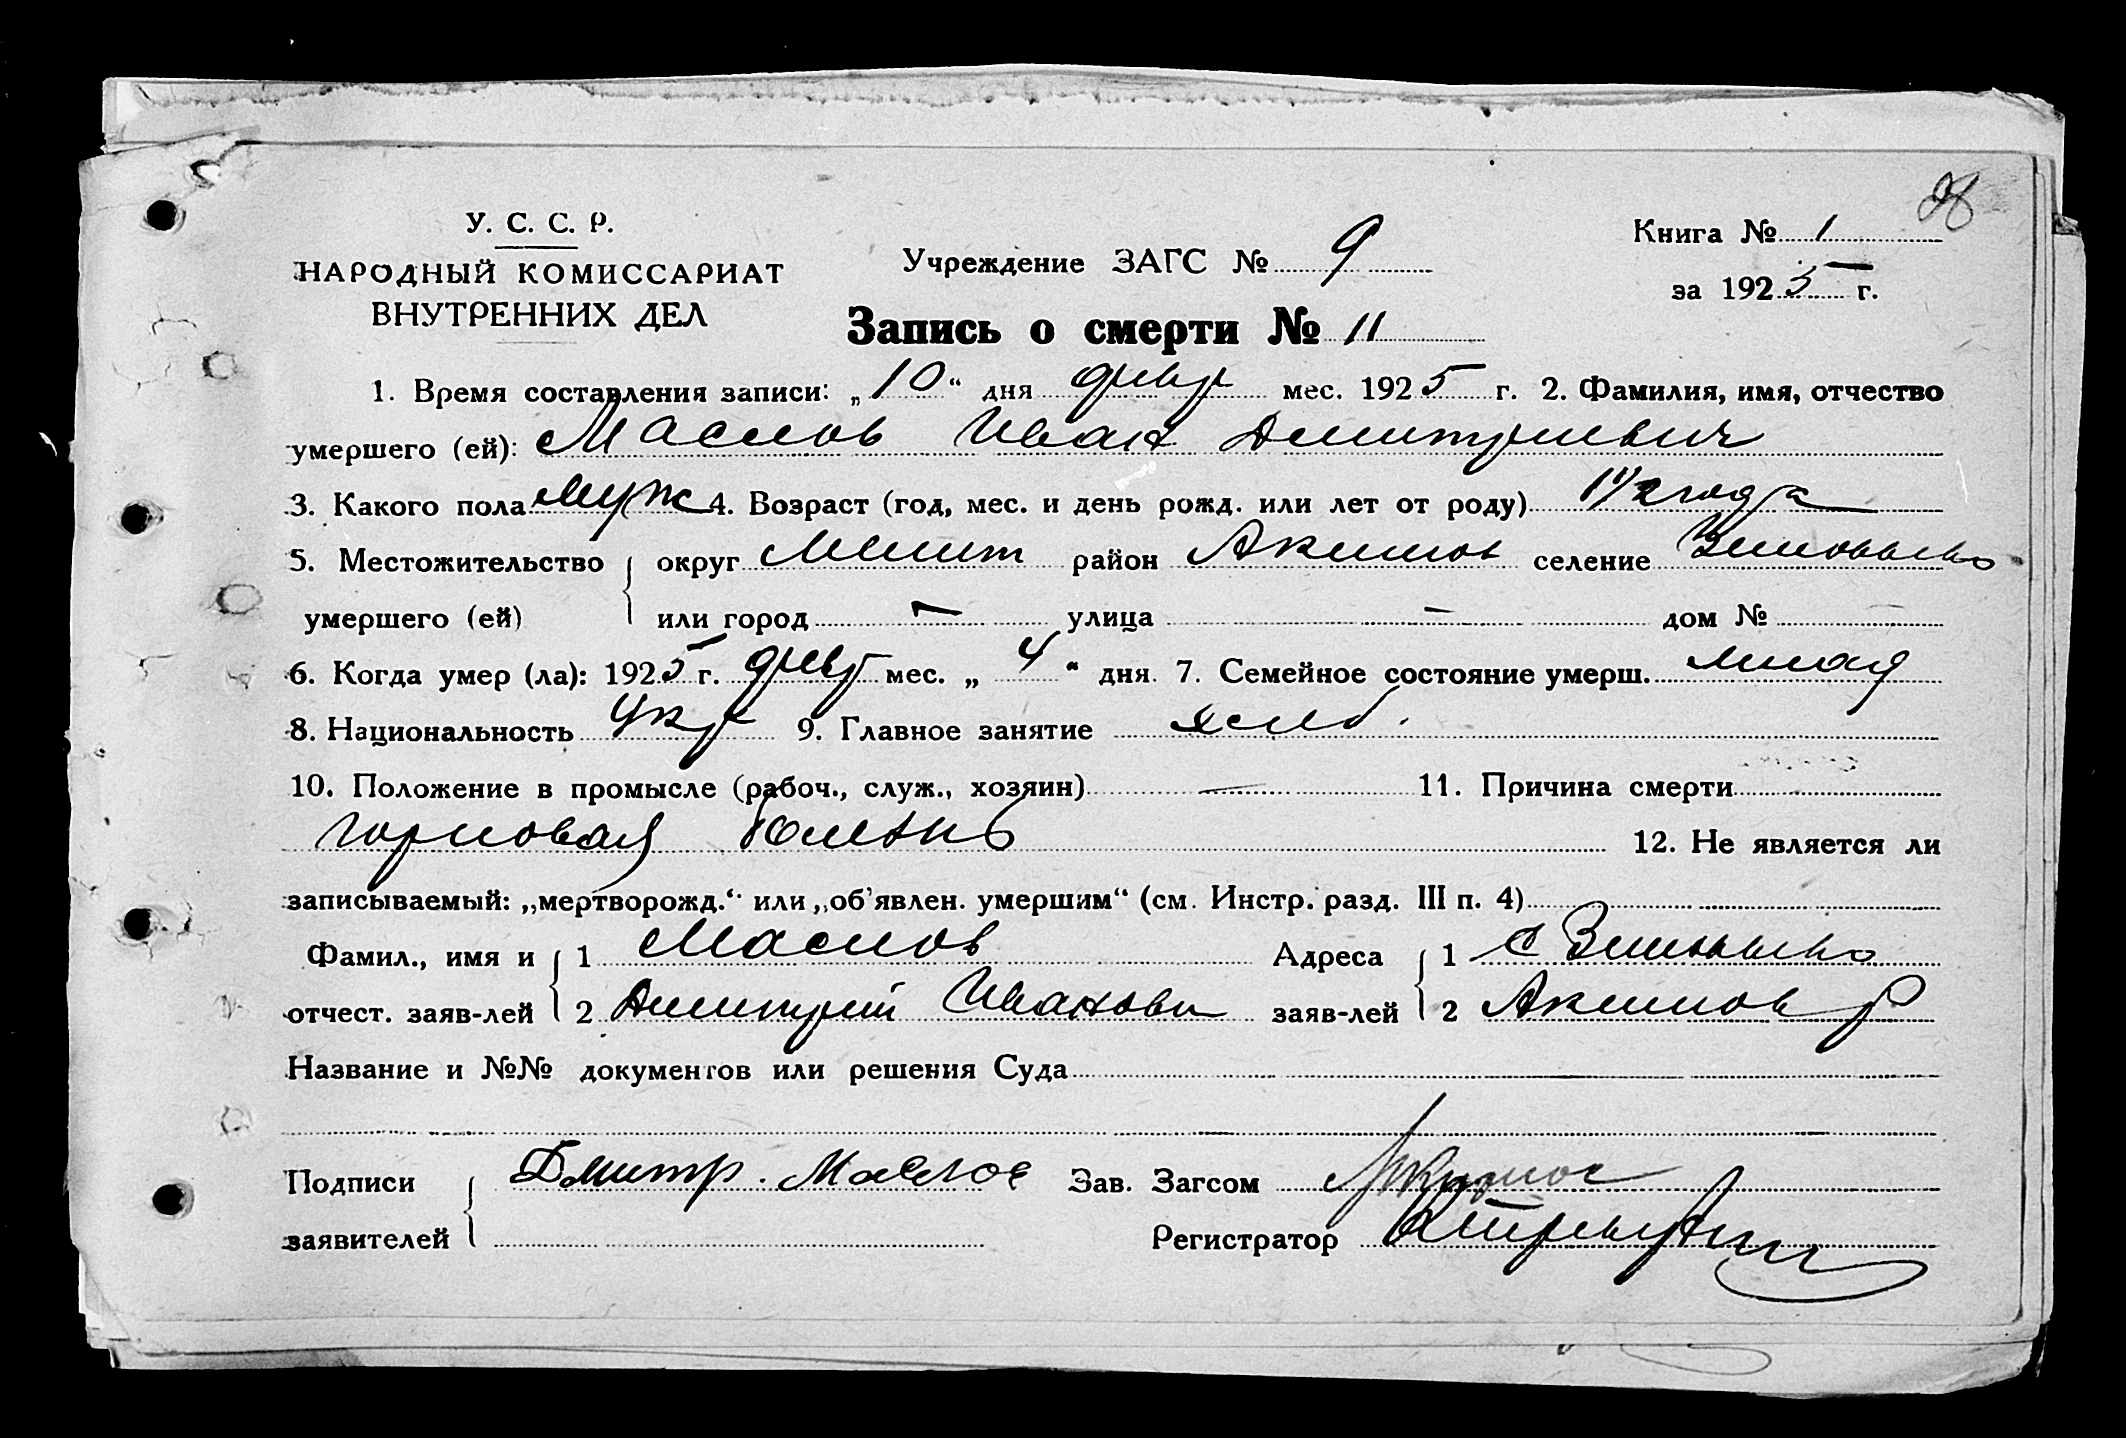 28
У. С. С. Р.
НАРОДНЫЙ КОМИССАРИАТ
ВНУТРЕННИХ ДЕЛ
Учреждение ЗАГС № 9
Книга № 1
за 1925 г.
Запись о смерти № 11
1. Время составления записи: „10“ дня февр мес. 1925 г. 2. Фамилия, имя, отчество
умершего (ей): Маслов Иван Дмитриевич
3. Какого пола муж 4. Возраст (год, мес. и день рожд. или лет от роду) 1 1/2 года
5. Местожительство округ Мелит район Акимов селение
умершего (ей) или город — улица — дом №
6. Когда умер (ла): 1925 г. февр мес. „4“ дня. 7. Семейное состояние умерш. млад
8. Национальность Укр 9. Главное занятие хлеб.
10. Положение в промысле (рабоч., служ., хозяин) — 11. Причина смерти
горловая болезнь 12. Не является ли
записываемый: „мертворожд.“ или „об'явлен. умершим“ (см. Инстр. разд. III п. 4)
Фамил., имя и 1 Маслов Адреса 1 с
отчест. заяв-лей 2 Дмитрий Иванови заяв-лей 2 Акимов р
Название и №№ документов или решения Суда
Подписи Дмитр. Маслов Зав. Загсом
заявителей Регистратор